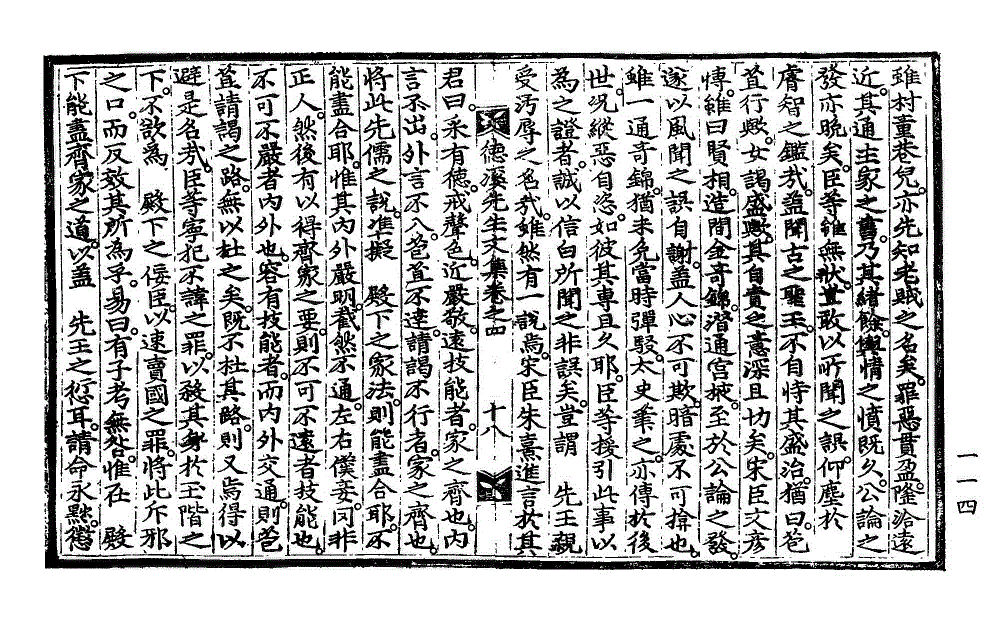 雖村童巷兒亦先知老賊之名矣罪惡貫盈隆洽遠
近其通主家之書乃其緖餘輿情之憤旣久公論之
發亦晩矣臣等雖無狀豈敢以所聞之誤仰塵於
膚智之鑑哉盖聞古之聖王不自恃其盛治猶曰苞
苴行歟女謁盛歟其自責之意深且切矣宋臣文彦
博雖曰賢相造間金奇錦潛通宮掖至於公論之發
遂以風聞之誤自謝盖人心不可欺暗處不可揜也
雖一通奇錦猶未免當時彈駁太史筆之亦傳於後
世况縱惡自恣如彼其專且久耶臣等援引此事以
為之證者誠以信白所聞之非誤矣豈謂 先王親
受汚辱之名哉雖然有一說焉宋臣朱熹進言於其
德溪先生文集卷之四 十八
君曰采有德戒聲色近嚴敬遠技能者家之齊也內
言不出外言不入苞苴不達請謁不行者家之齊也
將此先儒之說准擬 殿下之家法則能盡合耶不
能盡合耶惟其內外嚴明截然不通左右僕妾罔非
正人然後有以得齊家之要則不可不遠者技能也
不可不嚴者內外也容有技能者而內外交通則苞
苴請謁之路無以杜之矣旣不杜其路則又焉得以
避是名哉臣等寧犯不諱之罪以殺其身於玉階之
下不欲為 殿下之佞臣以速賣國之罪將此斥邪
之口而反效其所為乎易曰有子考無咎惟在 殿
下能盡齊家之道以盖 先王之愆耳請命永黜懲
一一四